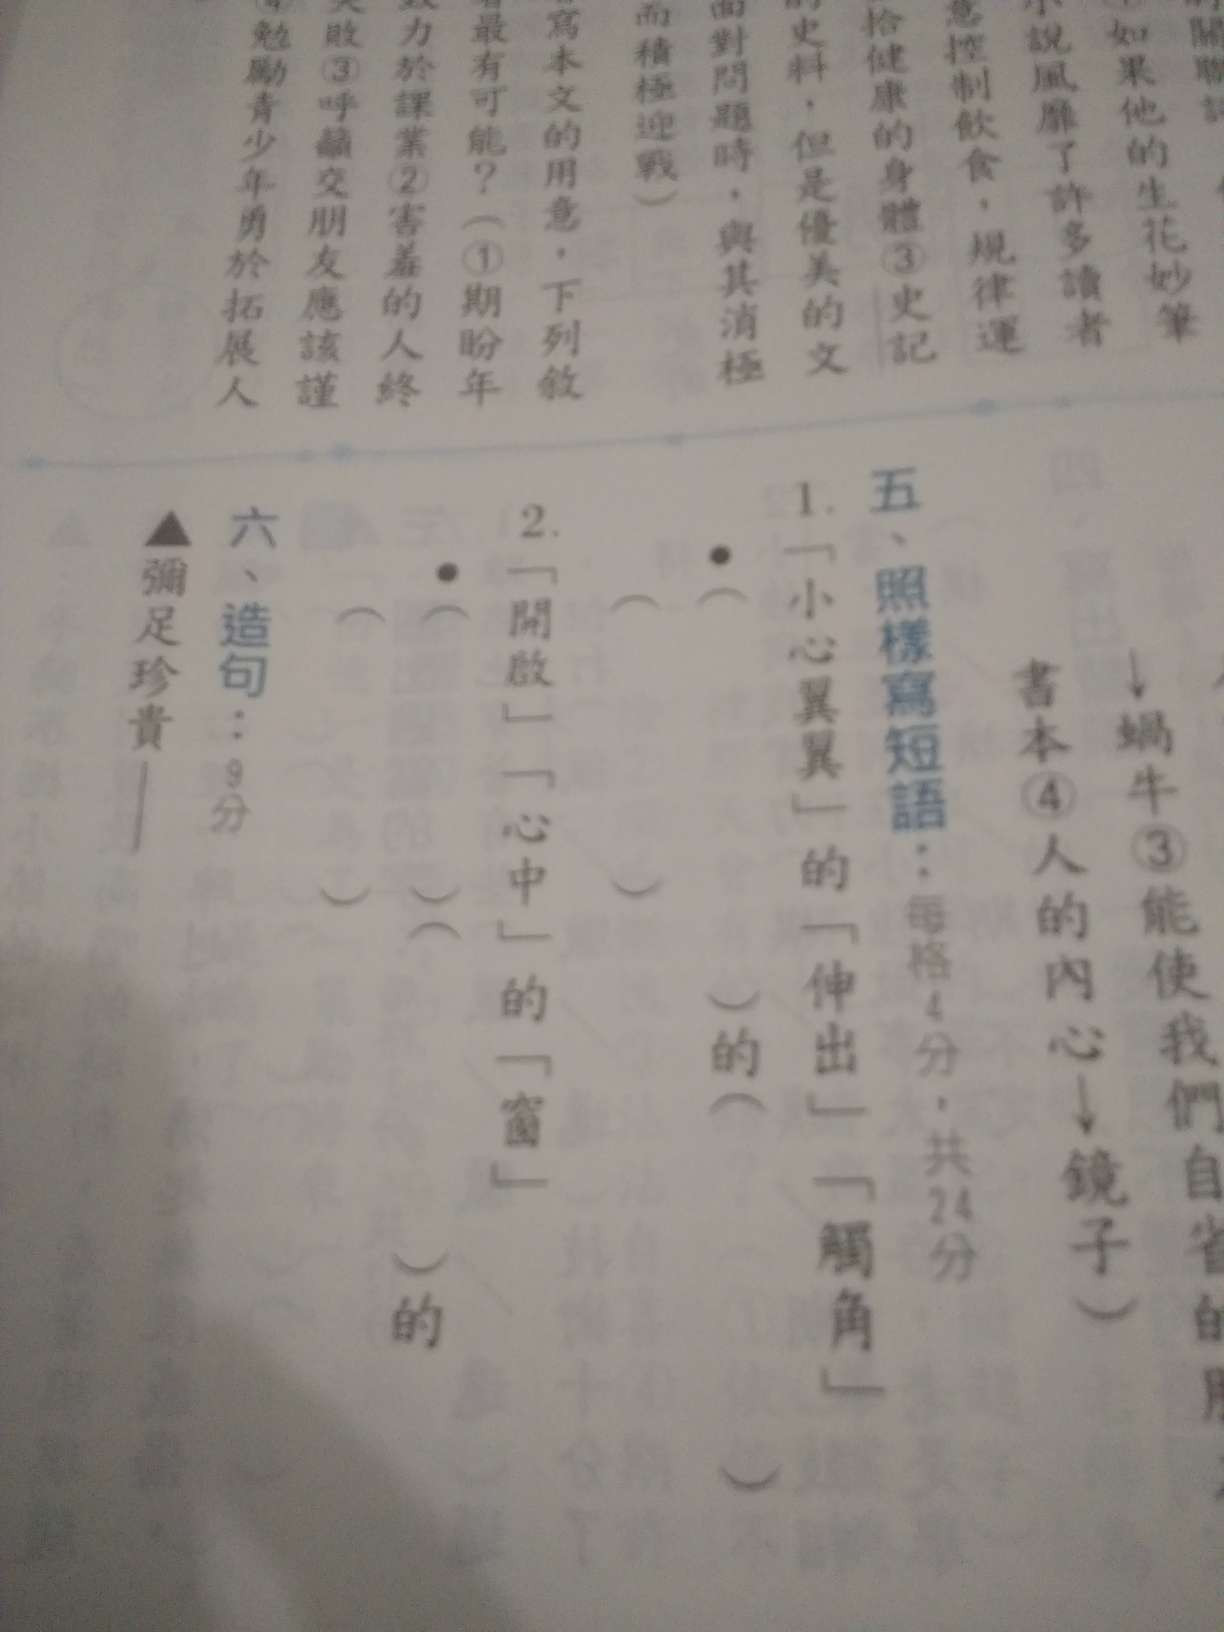 如果他的生花妙筆
小說風靡了許多讀者
意控制飲食，規律運
拾健康的身體③史記
的史料，但是優美的文
面對問題時，與其消極
而積極迎戰）
寫本文的用意，下列敘
最有可能？（①期盼年
致力於課業②害羞的人終
失敗③呼籲交朋友應該謹
④勉勵青少年勇於拓展人
能使我們自省的
→蝸牛③能使我們自省的
書本④人的內心→鏡子）
五、照樣寫短語：每格4分，共24分
1.「小心翼翼」的「伸出」「觸角」
●（ ）的（ ）
（ ）
2.「開啟」「心中」的「窗」
●（ ）（ ）的
（ ）
六、造句：9分
▲彌足珍貴—